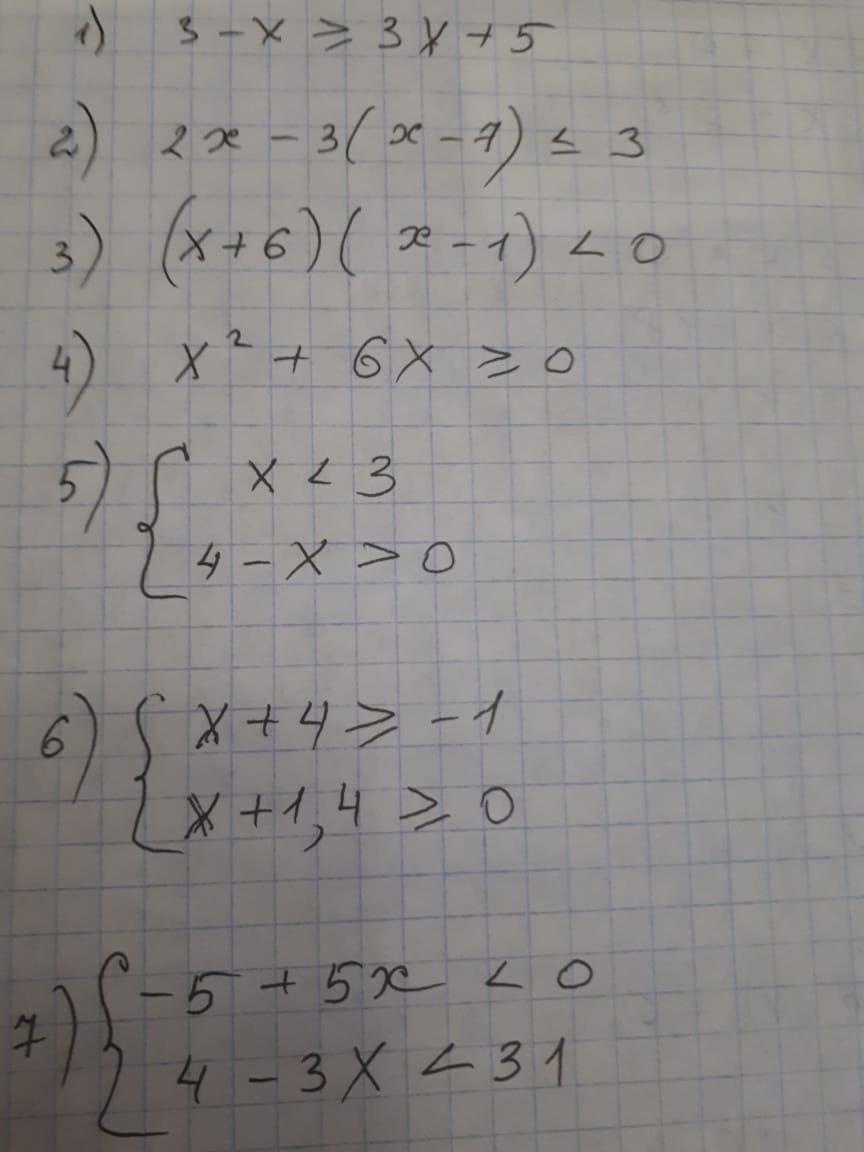 1) 3 - x ≥ 3x + 5
2) 2x - 3(x - 7) ≤ 3
3) (x + 6)(x - 1) < 0
4) x² + 6x ≥ 0
5) { x < 3
4 - x > 0
6) { x + 4 ≥ -1
x + 1,4 ≥ 0
7) { -5 + 5x < 0
4 - 3x < 31